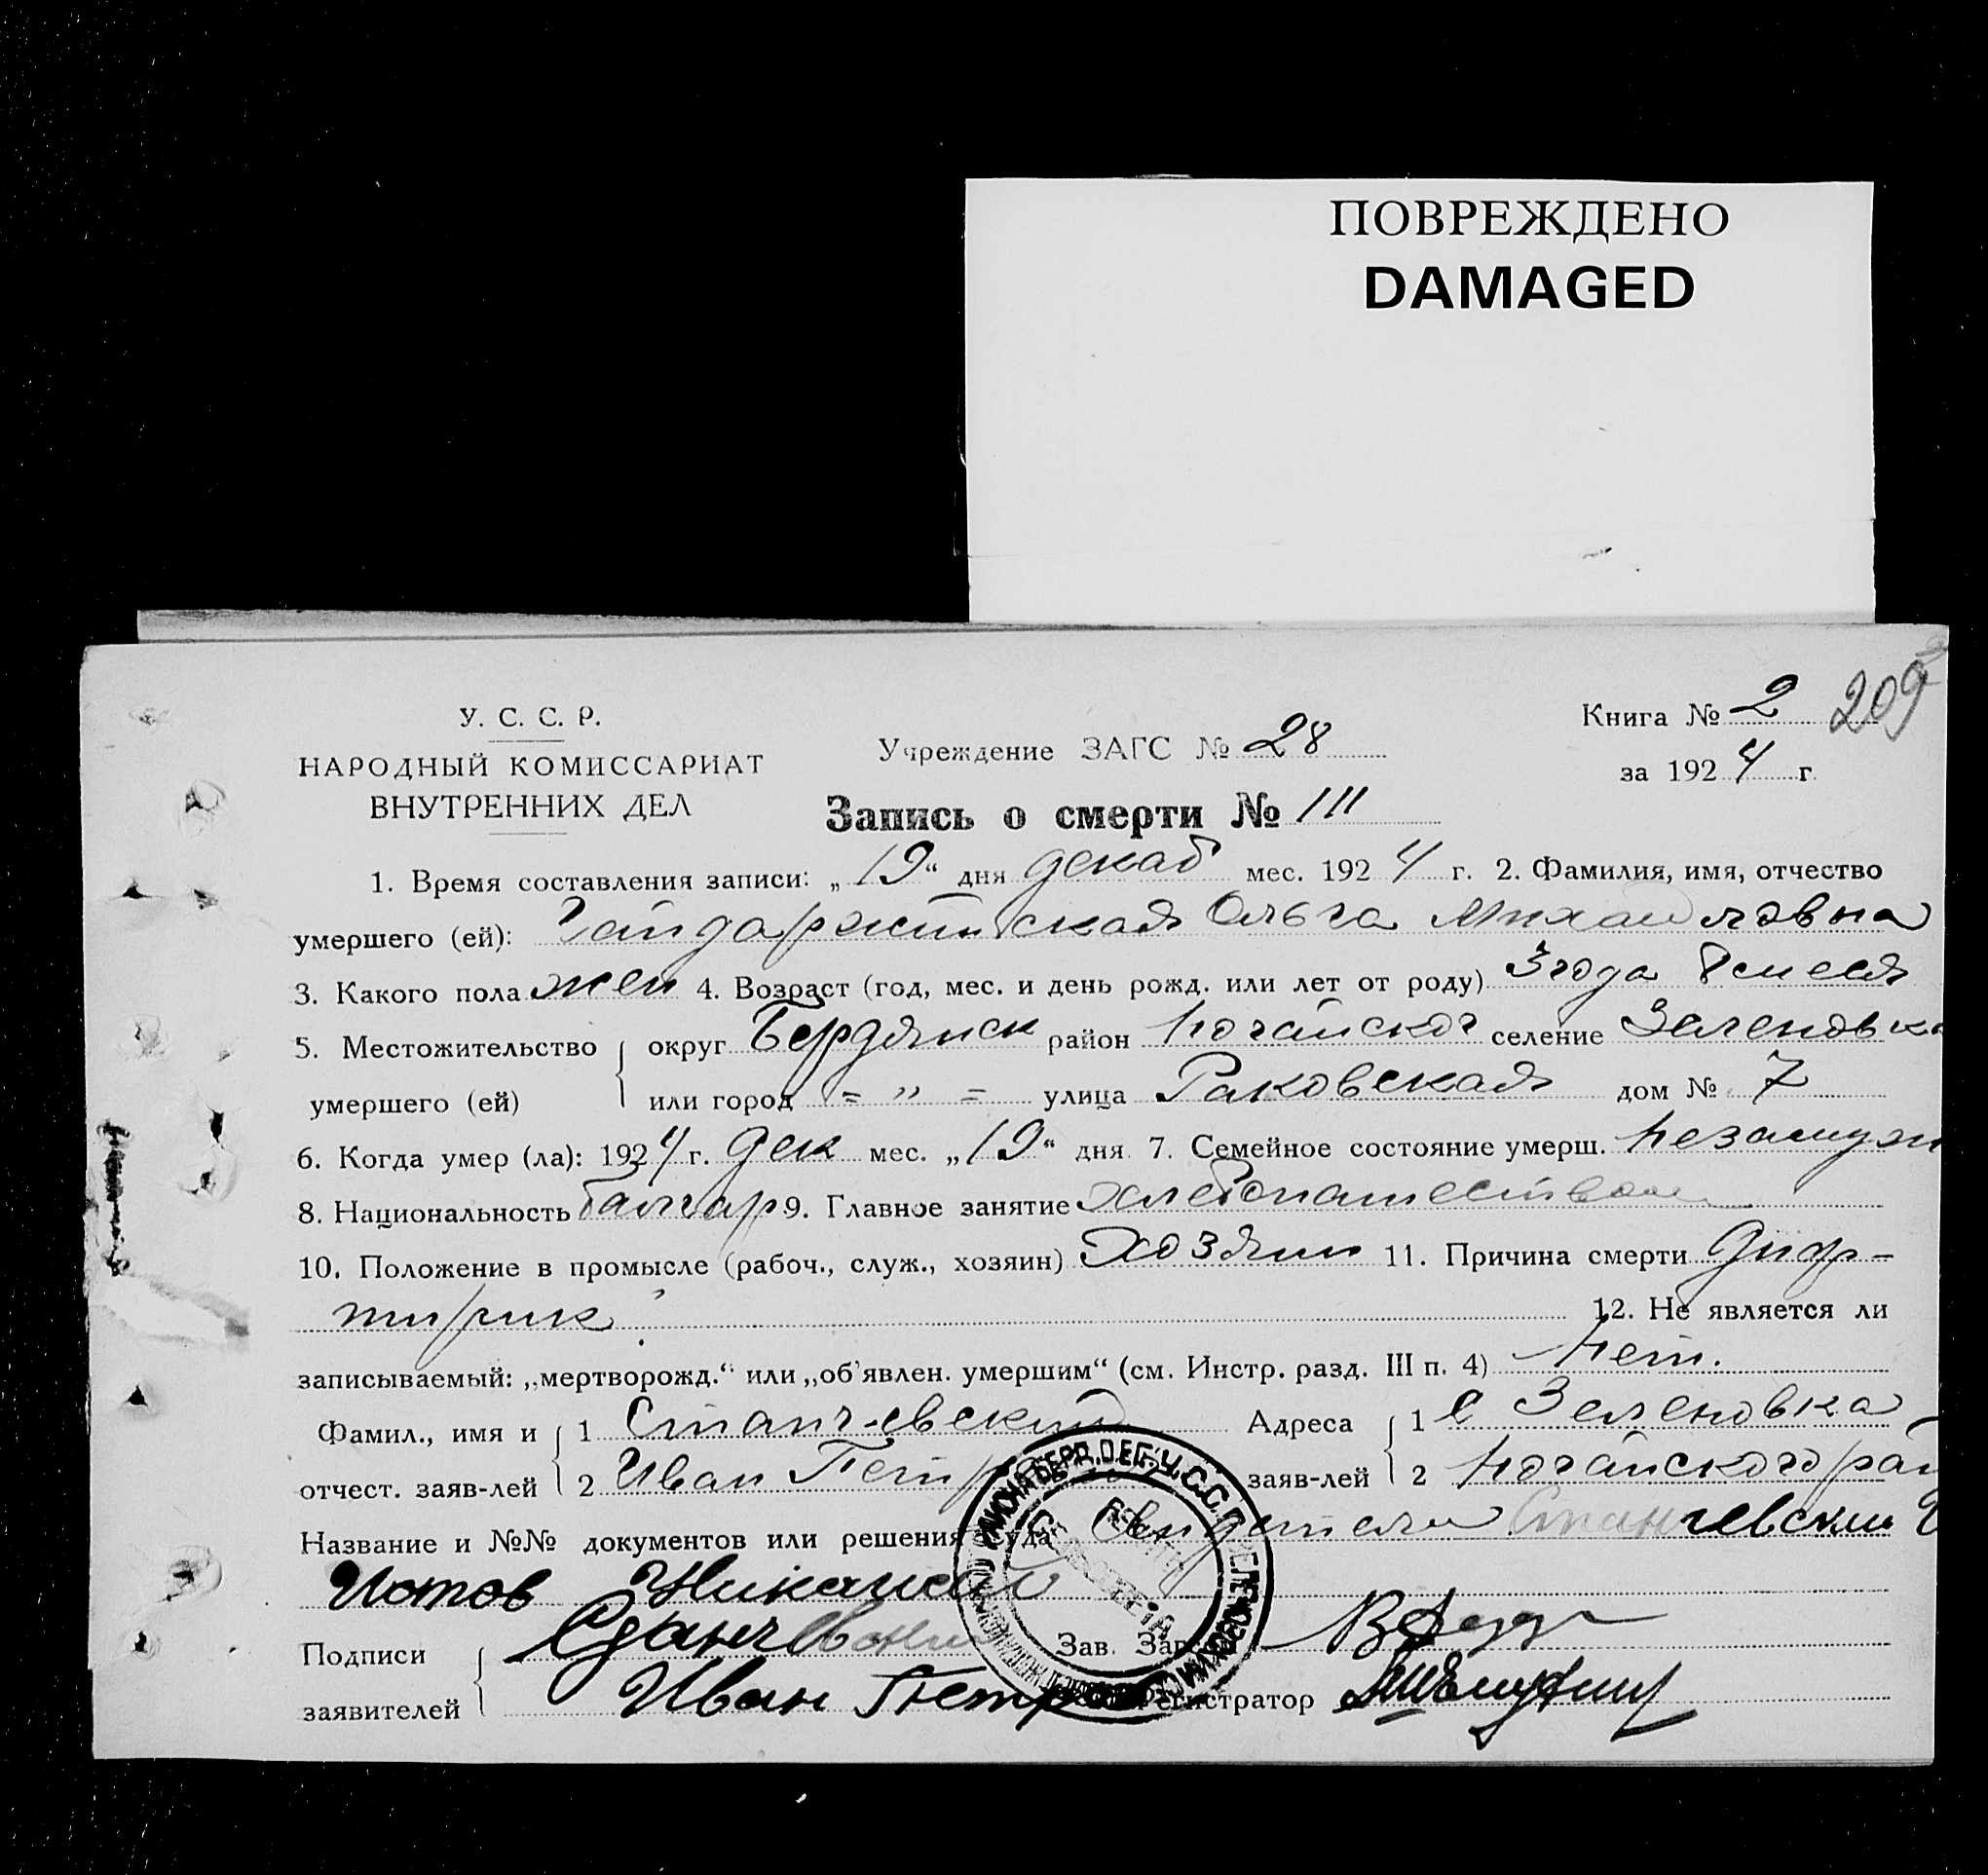 ПОВРЕЖДЕНО
DAMAGED
У. С. С. Р.
НАРОДНЫЙ КОМИССАРИАТ
ВНУТРЕННИХ ДЕЛ
Учреждение ЗАГС № 28
Книга № 2
209
за 1924 г.
Запись о смерти № 111
1. Время составления записи: „19“ дня декаб мес. 1924 г. 2. Фамилия, имя, отчество
умершего (ей): Ольга Михайловна
3. Какого пола жен 4. Возраст (год, мес. и день рожд. или лет от роду) 3 года
5. Местожительство округ Бердянск район Ногайског селение Зеленовка
умершего (ей) или город = „ = улица Раковская дом № 7
6. Когда умер (ла): 1924 г. дек мес. „19“ дня 7. Семейное состояние умерш. незамуж
8. Национальность болгар 9. Главное занятие хлебопашеством
10. Положение в промысле (рабоч., служ., хозяин) хозяин 11. Причина смерти диф-
тирик
12. Не является ли
записываемый: „мертворожд.“ или „об'явлен. умершим“ (см. Инстр. разд. III п. 4) нет.
Фамил., имя и 1 Станчевский Адреса 1 с Зеленовка
отчест. заяв-лей 2 Иван Петр заяв-лей 2 Ногайского рай
Название и №№ документов или решения суда свидетели Станчевский
Иотов Николай
Подписи Станчевский Зав. Загса
заявителей Иван Петр Регистратор